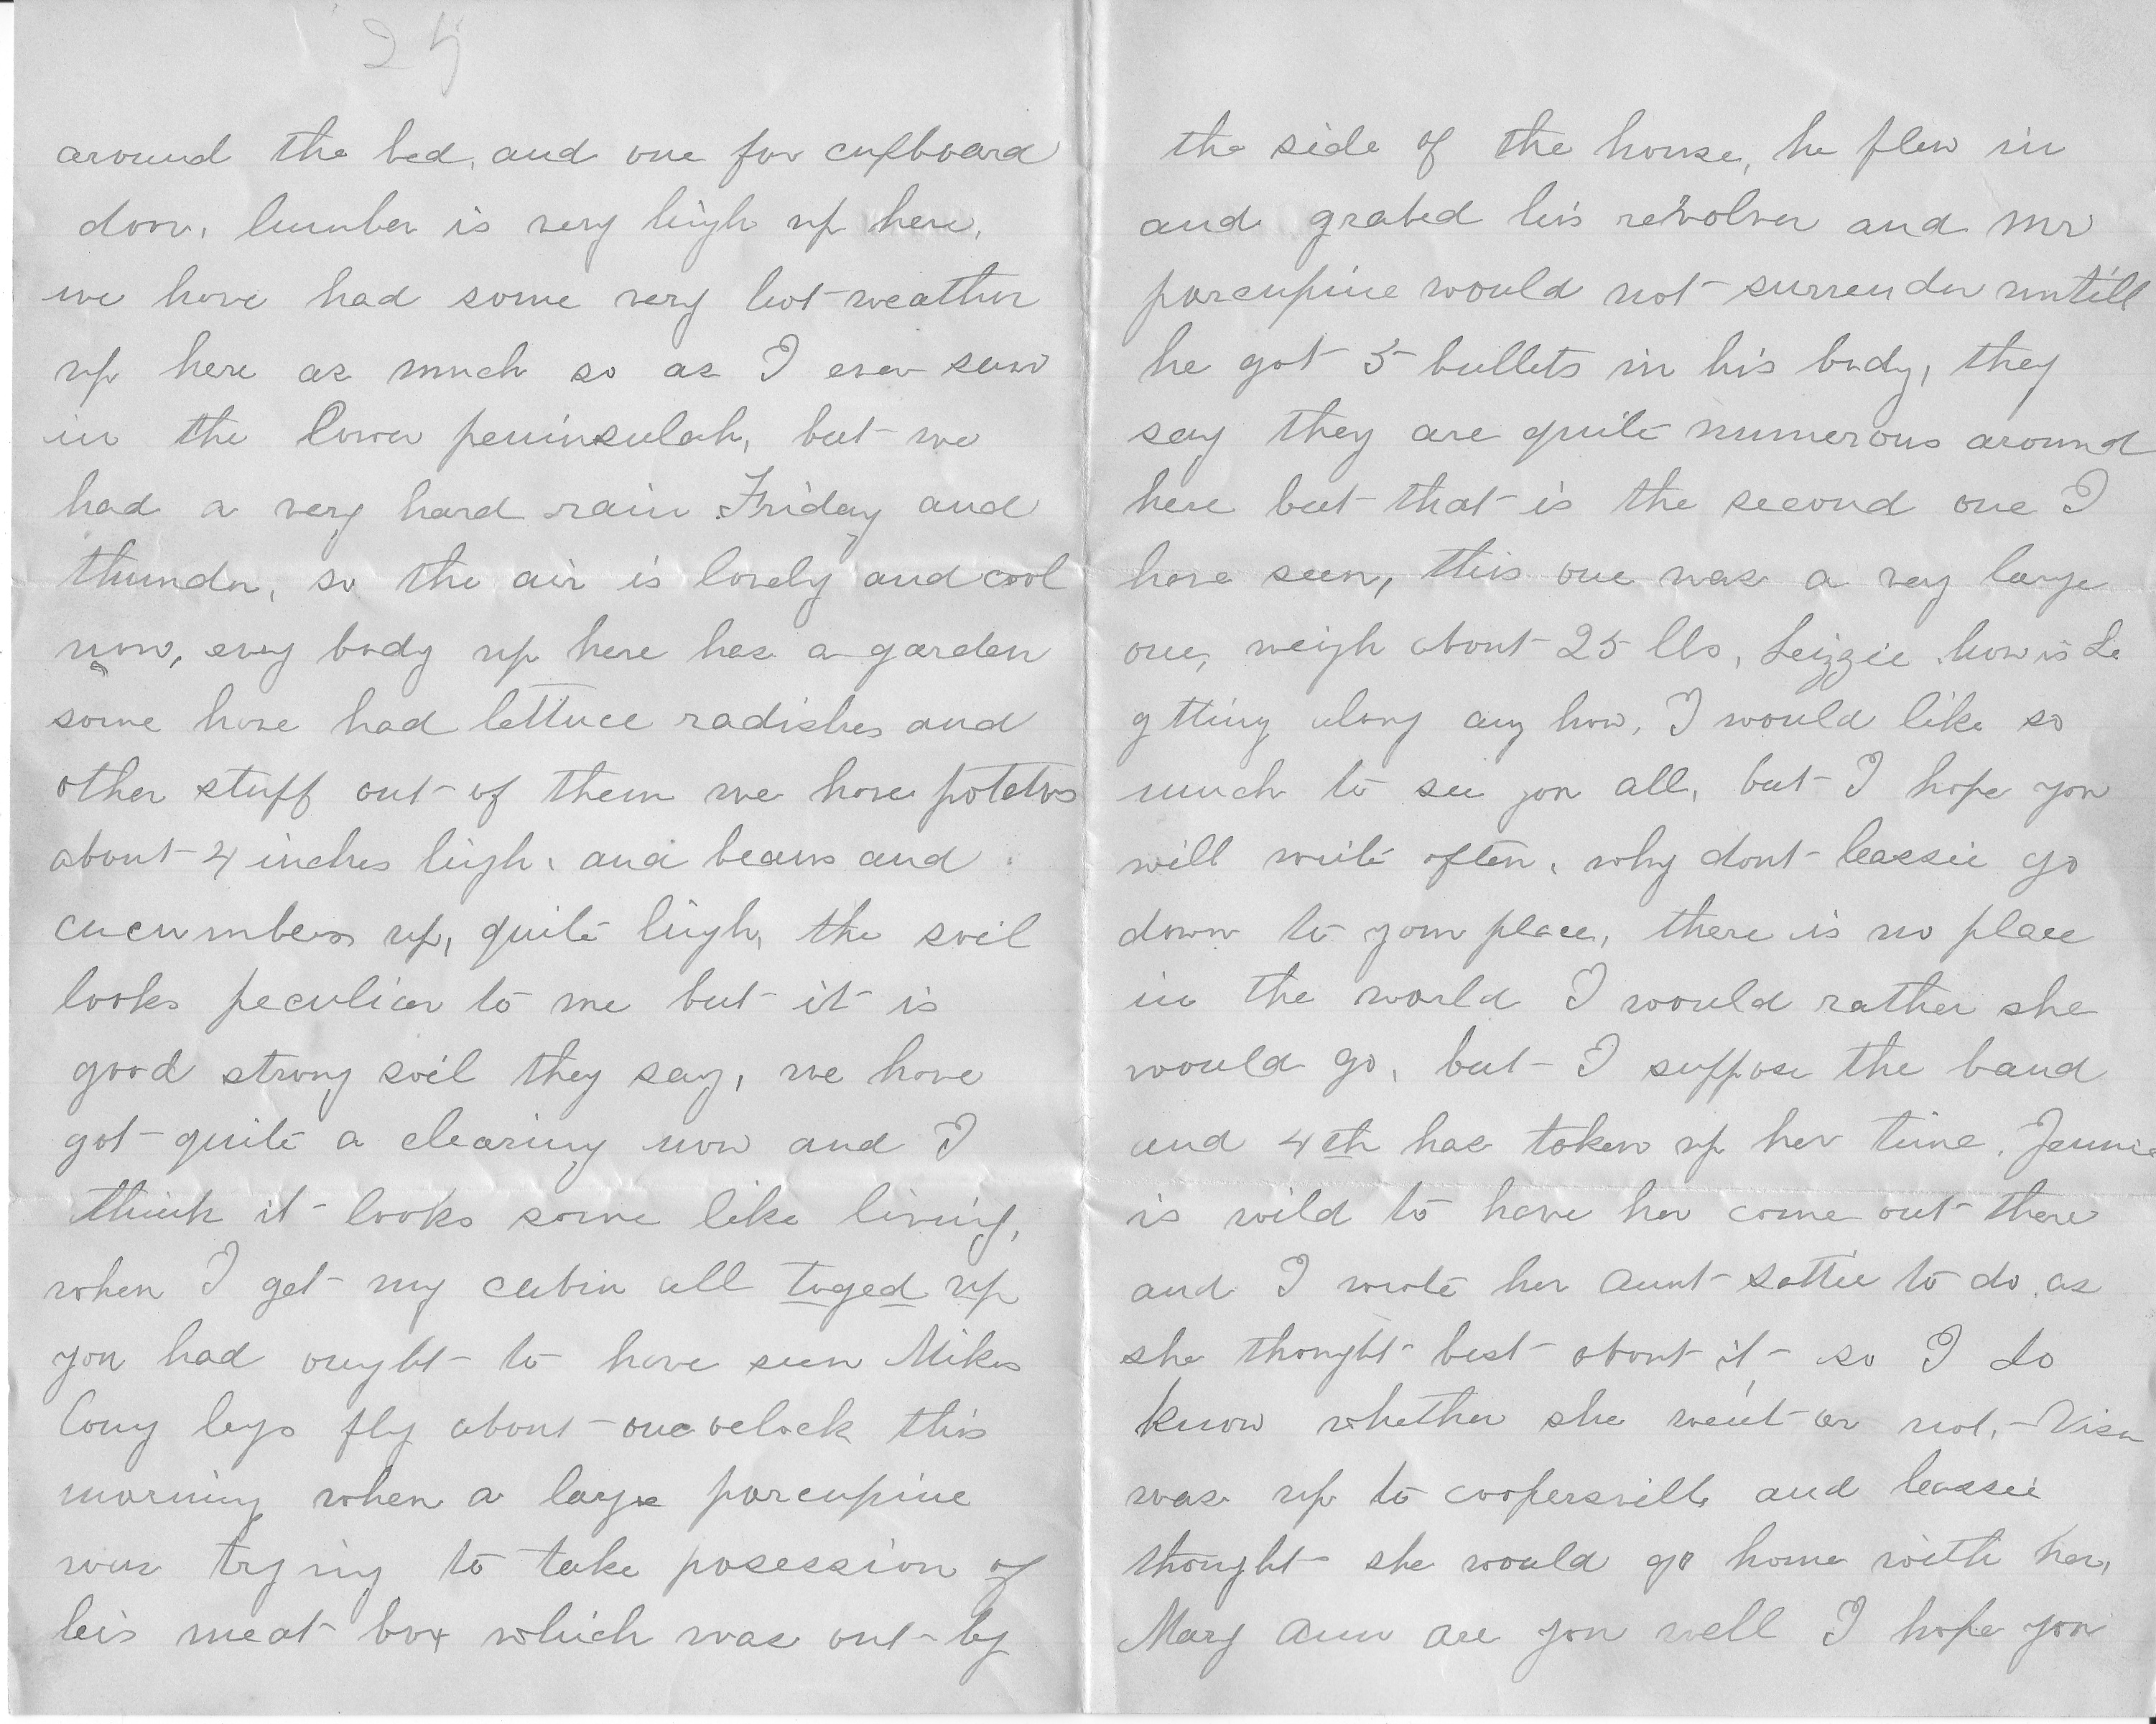 24
around the bed, and one for cupboard
door, lumber is very high up here,
we have had some very hot weather
up here as much so as I ever saw
in the Lower peninsulah, but we
had a very hard rain Friday and
thunder, so the air is lovely and cool
now, every body up here has a garden
some have had lettuce radishes and
other stuff out of them we have potatos
about 4 inches high, and beans and
cucumbers up, quite high, the soil
looks peculiar to me but it is
good strong soil they say, we have
got quite a clearing now and I
think it looks some like living,
when I get my cabin all toged up
you had ought to have seen Mikes
Long legs fly about one oclock this
morning when a large porcupine
was trying to take posession of
his meat box which was out by
the side of the house, he flew in
and grabed his revolver and Mr
porcupine would not surrender untill
he got 5 bullets in his body, they
say they are quite numerous around
here but that is the second one I
have seen, this one was a very large
one, weigh about 25 lbs, Leizzie how is Le
gtting along any how, I would like so
much to see you all, but I hope you
will write often, why dont leassie go
down to your place, there is no place
in the world I would rather she
would go, but I suppose the band
and 4th has taken up her time, Jennie
is wild to have her come out there
and I wrote her Aunt Lottie to do as
she thought best about it so I do
know whether she went or not,
was up to coopersville and leassie
thought she would go home with her,
Mary Ann are you well I hope you